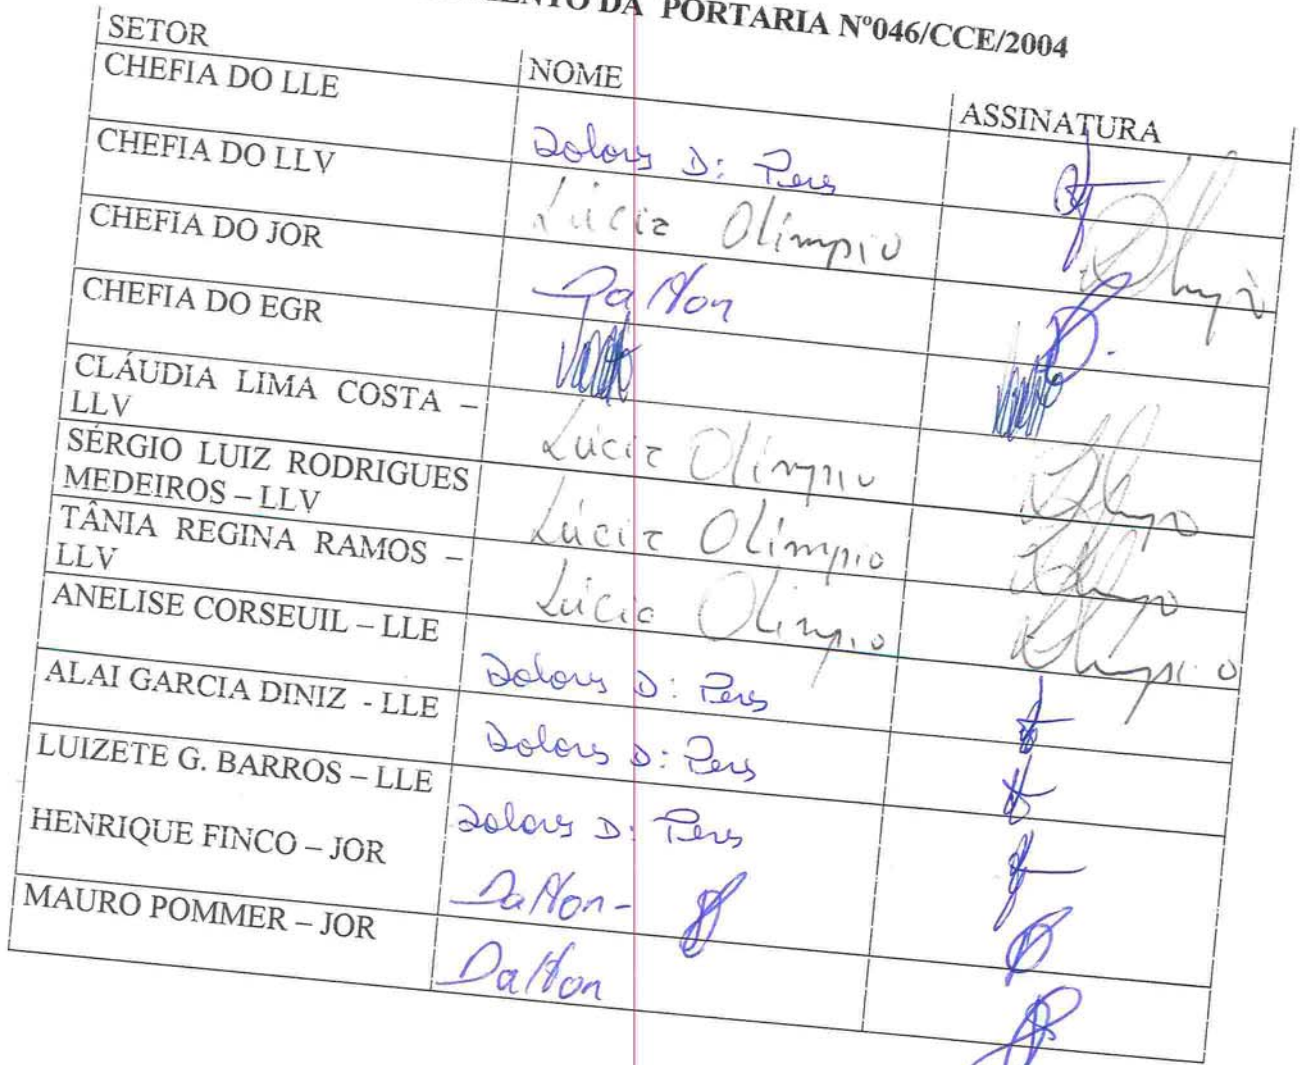 DA PORTARIA Nº046/CCE/2004
SETOR NOME ASSINATURA
CHEFIA DO LLE Dolors D: Pers
CHEFIA DO LLV Lúcia Olímpio
CHEFIA DO JOR Dalton
CHEFIA DO EGR
CLÁUDIA LIMA COSTA – Lúcia Olímpio
LLV
SÉRGIO LUIZ RODRIGUES Lúcia Olímpio
MEDEIROS – LLV
TÂNIA REGINA RAMOS – Lúcia Olímpio
LLV
ANELISE CORSEUIL – LLE Dolors D: Pers
ALAI GARCIA DINIZ - LLE Dolors D: Pers
LUIZETE G. BARROS – LLE Dolors D: Pers
HENRIQUE FINCO – JOR Dalton-
MAURO POMMER – JOR Dalton